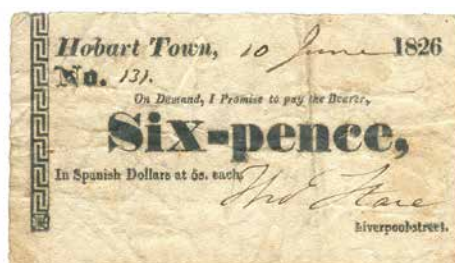 Hobart Town, 10 June 1826
No. 131.
On Demand, I Promise to pay the Bearer,
Six-pence,
In Spanish Dollars at 5s. each.
Liverpool-street.